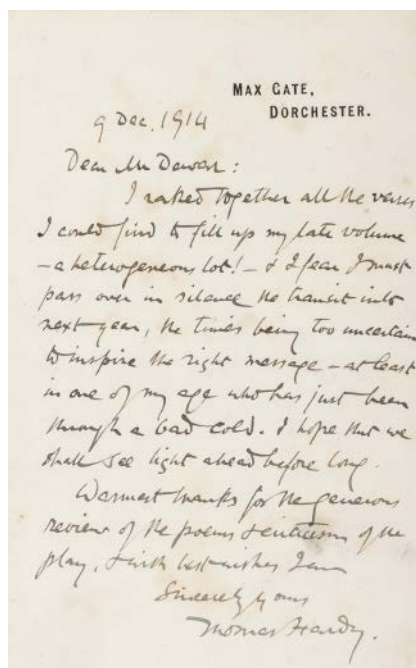 MAX GATE,
DORCHESTER.
9 Dec. 1914
Dear Mr Dewar:
I raked together all the verses
I could find to fill up my late volume
– a heterogeneous lot! – & I fear I must
pass over in silence the transit into
next year, the times being too uncertain
to inspire the right message – at least
in one of my age who has just been
through a bad cold. I hope that we
shall see light ahead before long.
Warmest thanks for the generous
review of the poems & criticism of the
play, & with best wishes I am
Sincerely yours
Thomas Hardy.